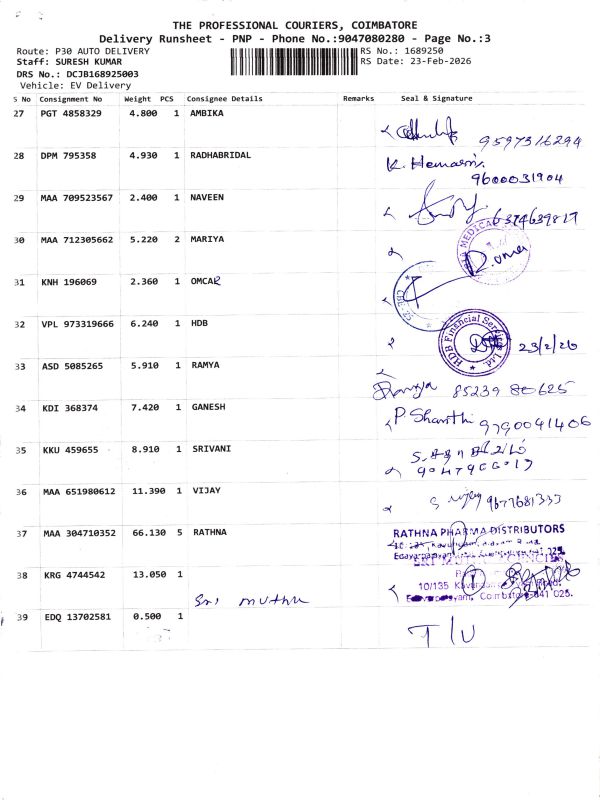 THE PROFESSIONAL COURIERS, COIMBATORE
Delivery Runsheet - PNP - Phone No.:9047080280 - Page No.:3
Route: P30 AUTO DELIVERY RS No.: 1689250
Staff: SURESH KUMAR RS Date: 23-Feb-2026
DRS No.: DCJB168925003
Vehicle: EV Delivery
S No Consignment No Weight PCS Consignee Details Remarks Seal & Signature
27 PGT 4858329 4.800 1 AMBIKA
9597316294
28 DPM 795358 4.930 1 RADHABRIDAL
9600031904
29 MAA 709523567 2.400 1 NAVEEN
6374639817
30 MAA 712305662 5.220 2 MARIYA
MEDICAL
31 KNH 196069 2.360 1 OMCAR
32 VPL 973319666 6.240 1 HDB
HDB Financial Services Ltd
23/2/26
33 ASD 5085265 5.910 1 RAMYA
Ramya 85239 80625
34 KDI 368374 7.420 1 GANESH
P Shanthi 9790041406
35 KKU 459655 8.910 1 SRIVANI
36 MAA 651980612 11.390 1 VIJAY
S vijay 9677681333
37 MAA 304710352 66.130 5 RATHNA
RATHNA PHARMA DISTRIBUTORS
38 KRG 4744542 13.050 1
Sri muthu
10/135
Coimbatore-641 025.
39 EDQ 13702581 0.500 1
T/U